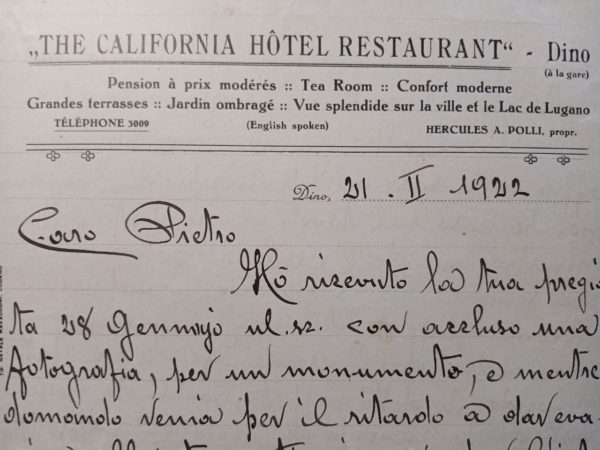 „THE CALIFORNIA HÔTEL RESTAURANT“ - Dino
(à la gare)
Pension à prix modérés :: Tea Room :: Confort moderne
Grandes terrasses :: Jardin ombragé :: Vue splendide sur la ville et le Lac de Lugano
TÉLÉPHONE 3009 (English spoken) HERCULES A. POLLI, propr.
Dino, 21. II 1922
Caro Pietro
Hô ricevuto la tua pregia
ta 28 Gennajo ul. sc. con accluso una
fotografia, per un monumento, e mentre
domando venia per il ritardo a